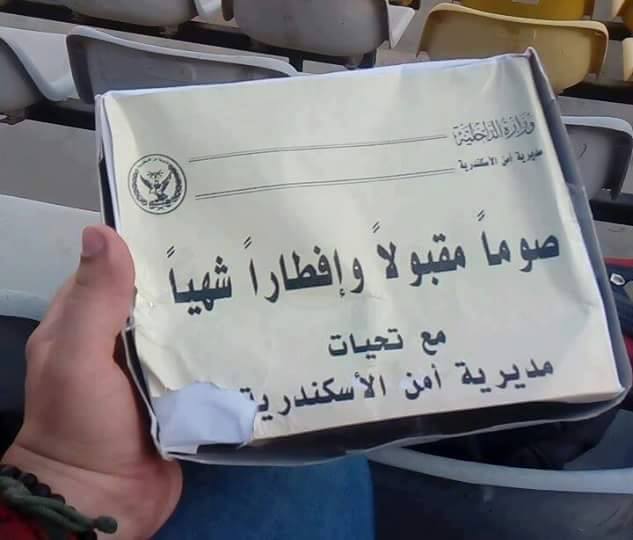 وزارة الداخلية
مديرية أمن الأسكندرية
صوماً مقبولاً وإفطاراً شهياً
مع تحيات
مديرية أمن الأسكندرية